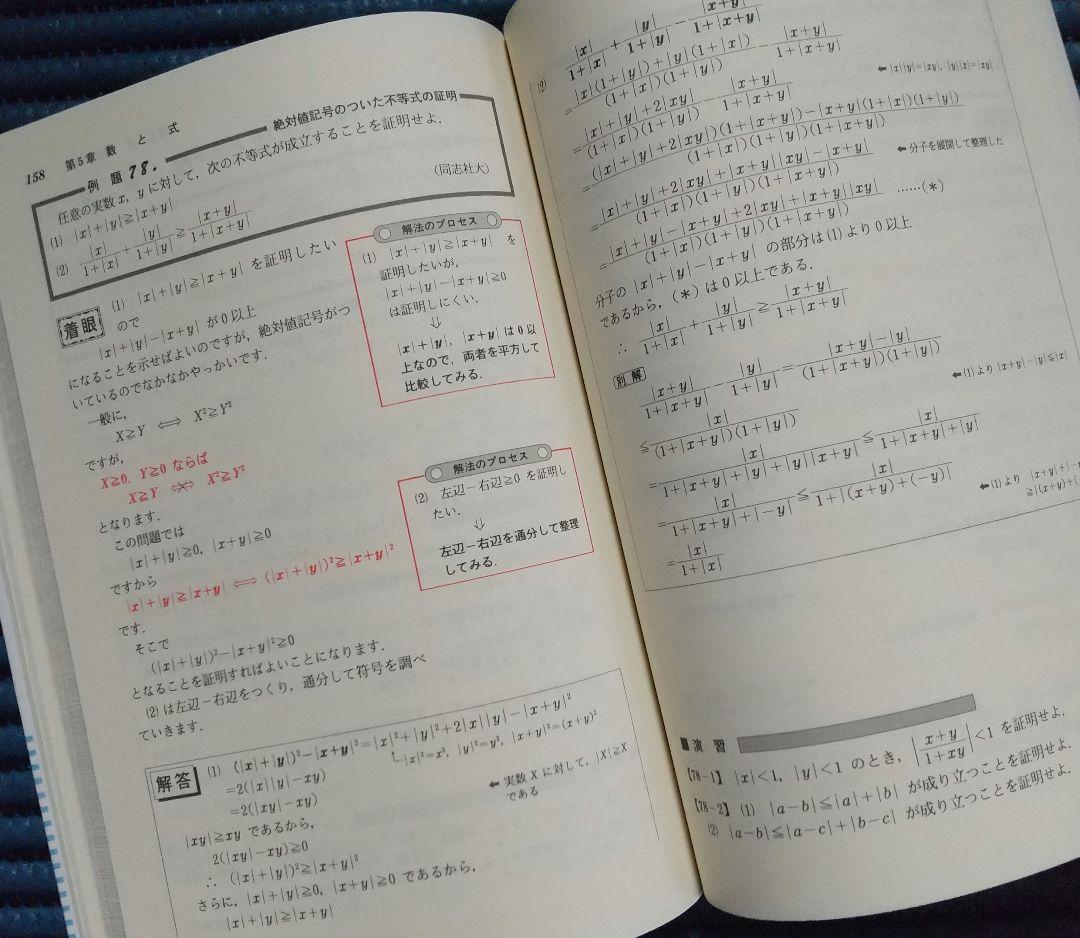 158 第5章 数 と 式
例 題 78. 絶対値記号のついた不等式の証明
任意の実数 x, y に対して，次の不等式が成立することを証明せよ．
(1) |x|+|y|≧|x+y|
(2) |x|/(1+|x|)+|y|/(1+|y|)≧|x+y|/(1+|x+y|)
(同志社大)
着眼 (1) |x|+|y|≧|x+y| を証明したい
ので
|x|+|y|−|x+y| が 0 以上
になることを示せばよいのですが，絶対値記号がつ
いているのでなかなかやっかいです．
一般に，
X≧Y ⟺ X²≧Y²
ですが，
X≧0, Y≧0 ならば
X≧Y ⟺ X²≧Y²
となります．
この問題では
|x|+|y|≧0, |x+y|≧0
ですから
|x|+|y|≧|x+y| ⟺ (|x|+|y|)²≧|x+y|²
です．
そこで
(|x|+|y|)²−|x+y|²≧0
となることを証明すればよいことになります．
(2) は左辺−右辺をつくり，通分して符号を調べ
ていきます．
解法のプロセス
(1) |x|+|y|≧|x+y| を
証明したいが，
|x|+|y|−|x+y|≧0
は証明しにくい．
⇓
|x|+|y|, |x+y| は 0 以
上なので，両者を平方して
比較してみる．
解法のプロセス
(2) 左辺−右辺≧0 を証明し
たい．
⇓
左辺−右辺を通分して整理
してみる．
解答 (1) (|x|+|y|)²−|x+y|²=|x|²+|y|²+2|x||y|−|x+y|²
|x|²=x², |y|²=y², |x+y|²=(x+y)²
=2(|x||y|−xy)
=2(|xy|−xy)
← 実数 X に対して，|X|≧X
である
|xy|≧xy であるから，
2(|xy|−xy)≧0
∴ (|x|+|y|)²≧|x+y|²
さらに，|x|+|y|≧0, |x+y|≧0 であるから，
|x|+|y|≧|x+y|
(2) |x|/(1+|x|)+|y|/(1+|y|)−|x+y|/(1+|x+y|)
=(|x|(1+|y|)+|y|(1+|x|))/((1+|x|)(1+|y|))−|x+y|/(1+|x+y|)
=(|x|+|y|+2|xy|)/((1+|x|)(1+|y|))−|x+y|/(1+|x+y|) ← |x||y|=|xy|, |y||x|=|xy|
=((|x|+|y|+2|xy|)(1+|x+y|)−|x+y|(1+|x|)(1+|y|))/((1+|x|)(1+|y|)(1+|x+y|))
=(|x|+|y|+2|xy|+|x+y||xy|−|x+y|)/((1+|x|)(1+|y|)(1+|x+y|)) ← 分子を展開して整理した
=(|x|+|y|−|x+y|+2|xy|+|x+y||xy|)/((1+|x|)(1+|y|)(1+|x+y|)) ……(*)
分子の |x|+|y|−|x+y| の部分は (1) より 0 以上
であるから，(*) は 0 以上である．
∴ |x|/(1+|x|)+|y|/(1+|y|)≧|x+y|/(1+|x+y|)
別解
|x+y|/(1+|x+y|)−|y|/(1+|y|)=(|x+y|−|y|)/((1+|x+y|)(1+|y|))
≦|x|/((1+|x+y|)(1+|y|)) ←(1)より |x+y|−|y|≦|x|
=|x|/(1+|x+y|+|y|+|y||x+y|)≦|x|/(1+|x+y|+|y|)
=|x|/(1+|x+y|+|−y|)≦|x|/(1+|(x+y)+(−y)|) ←(1)より |x+y|+|−
≧|(x+y)+(
=|x|/(1+|x|)
■ 演 習
【78-1】 |x|<1, |y|<1 のとき，|(x+y)/(1+xy)|<1 を証明せよ．
【78-2】 (1) |a−b|≦|a|+|b| が成り立つことを証明せよ．
(2) |a−b|≦|a−c|+|b−c| が成り立つことを証明せよ．